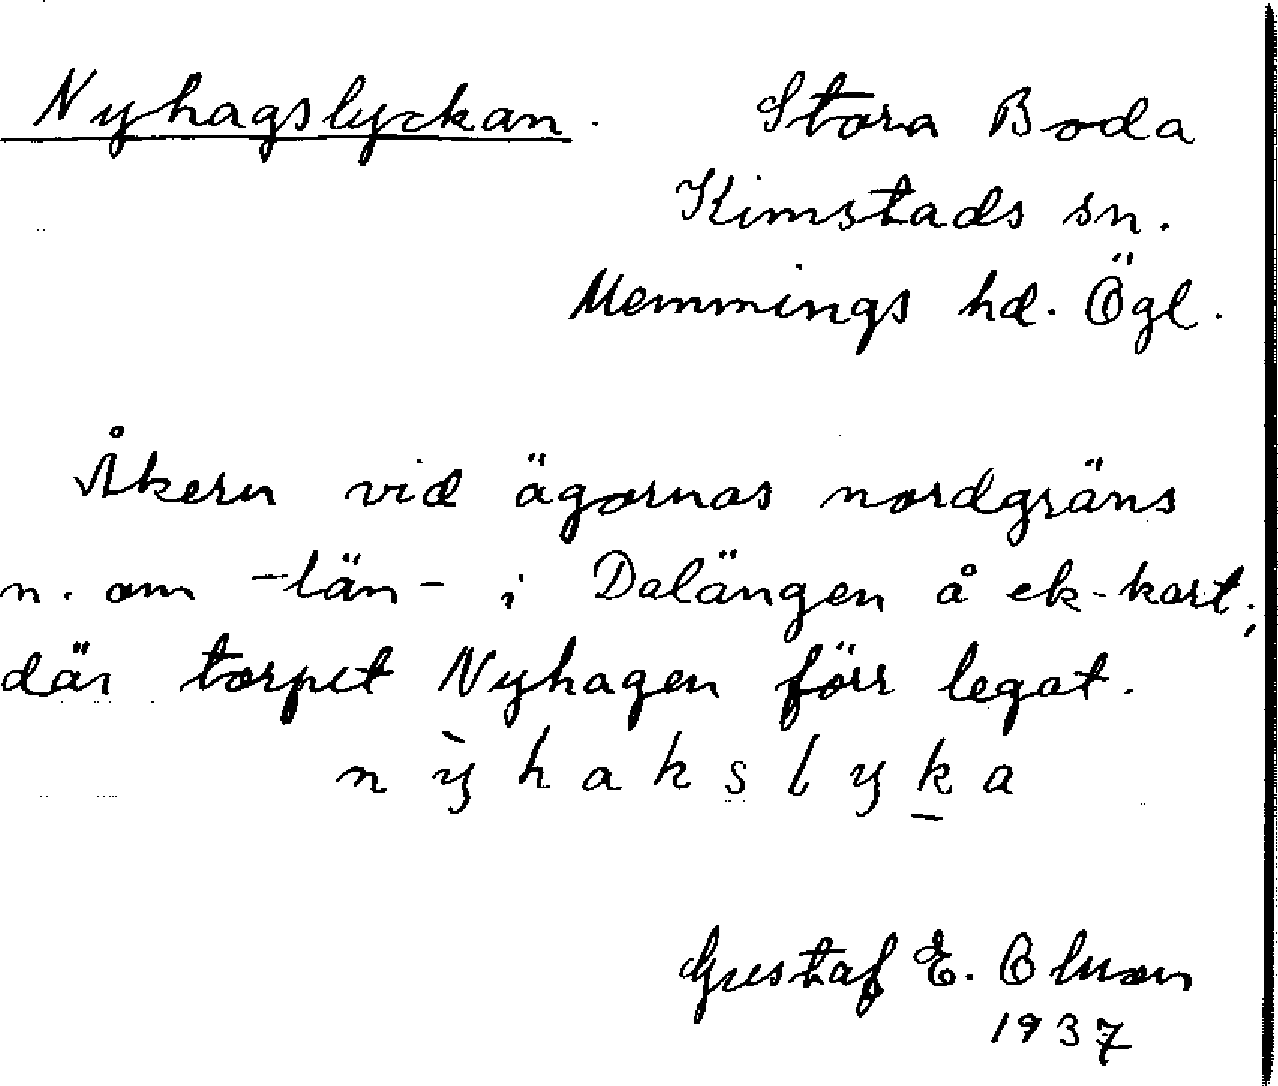 Nyhagslyckan. Stora Boda
Kimstads sn.
Memmings hd. Ögl.
Åkern vid ägornas nordgräns
n. om -län- i Dalängen å ek-kart;
där torpet Nyhagen förr legat.
nỳhakslyḵa
Gustaf E. Olsson
1937